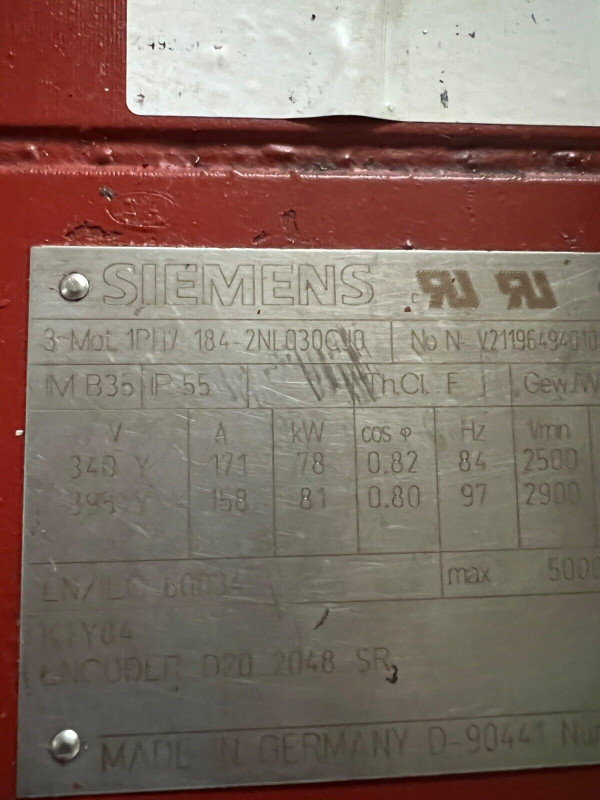 SIEMENS c RU RU
3-Mot. 1PH7 184-2NL030CJ0 No N- V2119649401
IM B35 IP 55 Th.Cl. F Gew./W
V A kW cos φ Hz
340 Y 171 78 0.82 84 2500
395 Y 158 81 0.80 97 2900
EN/IEC 60034 max 5000
KTY84
ENCODER D20 2048 SR
MADE IN GERMANY D-90441